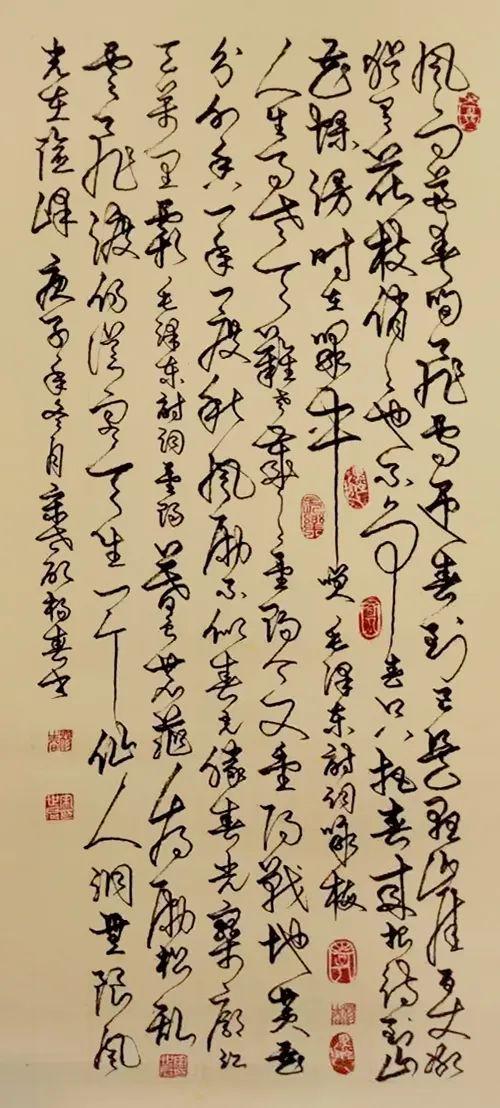 风雨送春归飞雪迎春到已是悬崖百丈冰
犹有花枝俏俏也不争春只把春来报待到山
花烂漫时在丛中笑 毛泽东诗词咏梅
人生易老天难老岁岁重阳今又重阳战地黄花
分外香一年一度秋风劲不似春光胜春光寥廓江
天万里霜 毛泽东诗词重阳 暮色苍茫看劲松乱
云飞渡仍从容天生一个仙人洞无限风
光在险峰 庚子年冬月